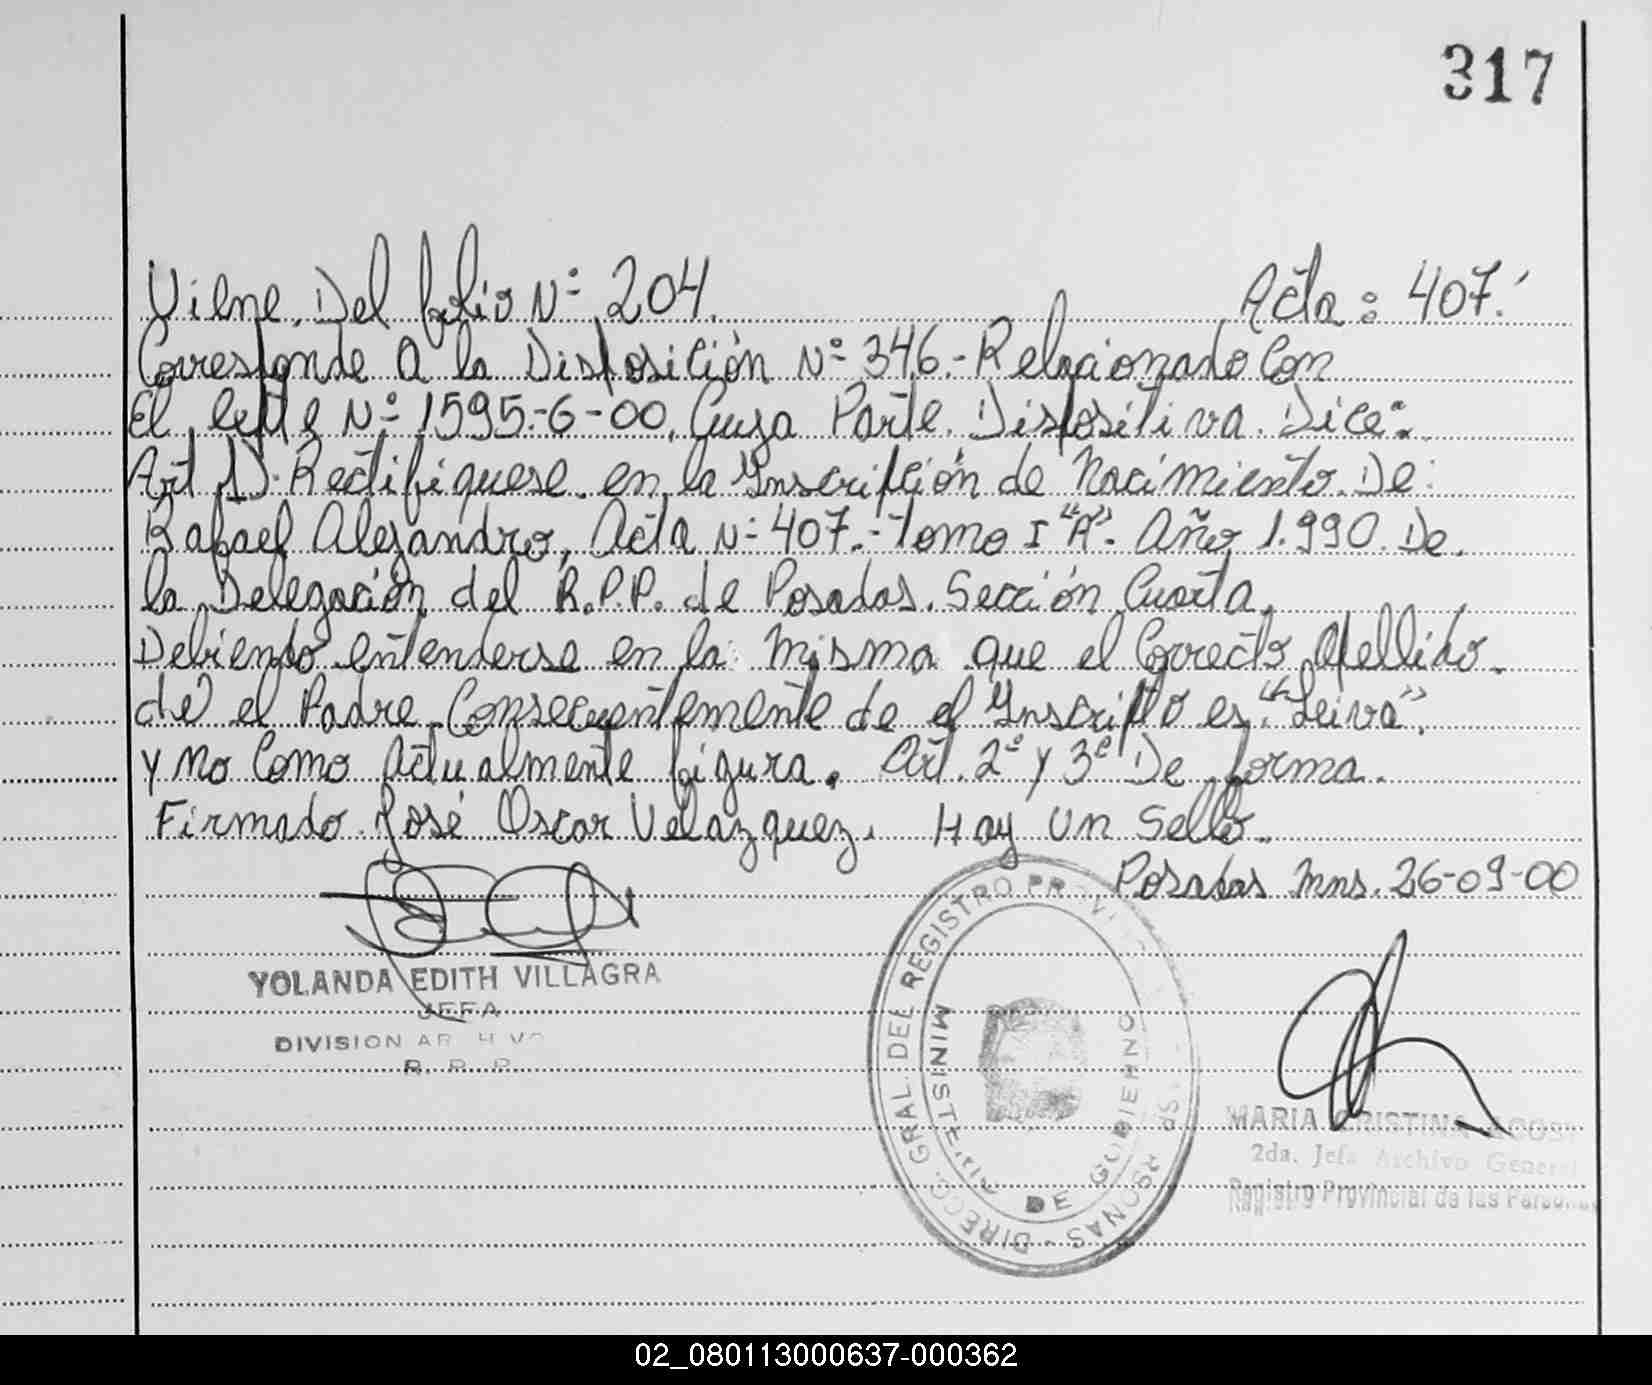 317
Viene Del folio Nº 204. Acta: 407.
Corresponde A la Disposición Nº 346.- Relacionado Con
El Expte Nº 1595-6-00, Cuya Parte Dispositiva Dice:
Art 1). Rectifíquese en la Inscripción de Nacimiento De:
Rafael Alejandro, Acta Nº 407.- Tomo I "A". Año 1.990. De
la Delegación del R.P.P. de Posadas. Sección Cuarta,
Debiendo entenderse en la misma que el Correcto Apellido
de el Padre Consecuentemente de el Inscripto es "Leiva".
y no Como Actualmente figura. Art. 2º y 3º De forma.
Firmado José Oscar Velazquez. Hay Un Sello.
Posadas Mns. 26-09-00
YOLANDA EDITH VILLAGRA
JEFA
DIVISION
R. P. P.
DIRECC. GRAL. DEL REGISTRO
MINISTERIO DE GOBIERNO
MARIA CRISTINA
2da. Jefa Archivo General
Registro Provincial de las Personas
02_080113000637-000362